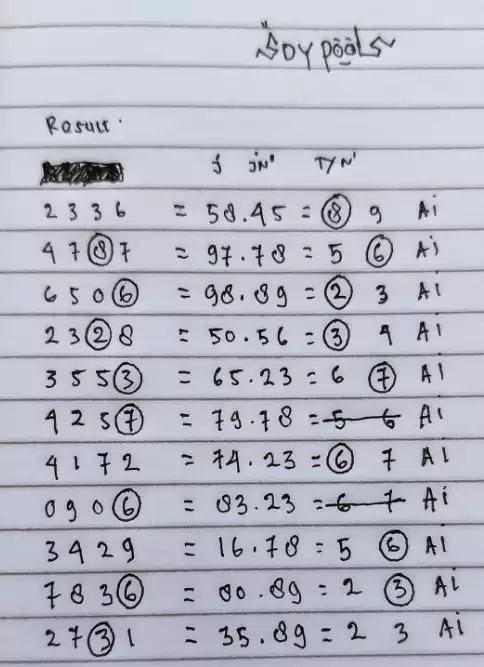 Soy pools
Result.
J JN' TYN'
2336 = 58.45 = 8 9 Ai
4787 = 97.78 = 5 6 Ai
6506 = 98.89 = 2 3 AI
2328 = 50.56 = 3 4 AI
3553 = 65.23 = 6 7 AI
4257 = 79.78 = 5 6 Ai
4172 = 74.23 = 6 7 AI
0906 = 83.23 = 6 7 Ai
3429 = 16.78 = 5 6 Ai
7836 = 80.89 = 2 3 Ai
2731 = 35.89 = 2 3 Ai